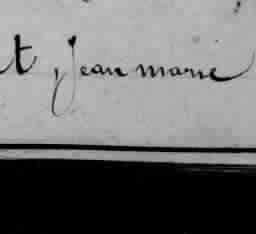 t, jean marie